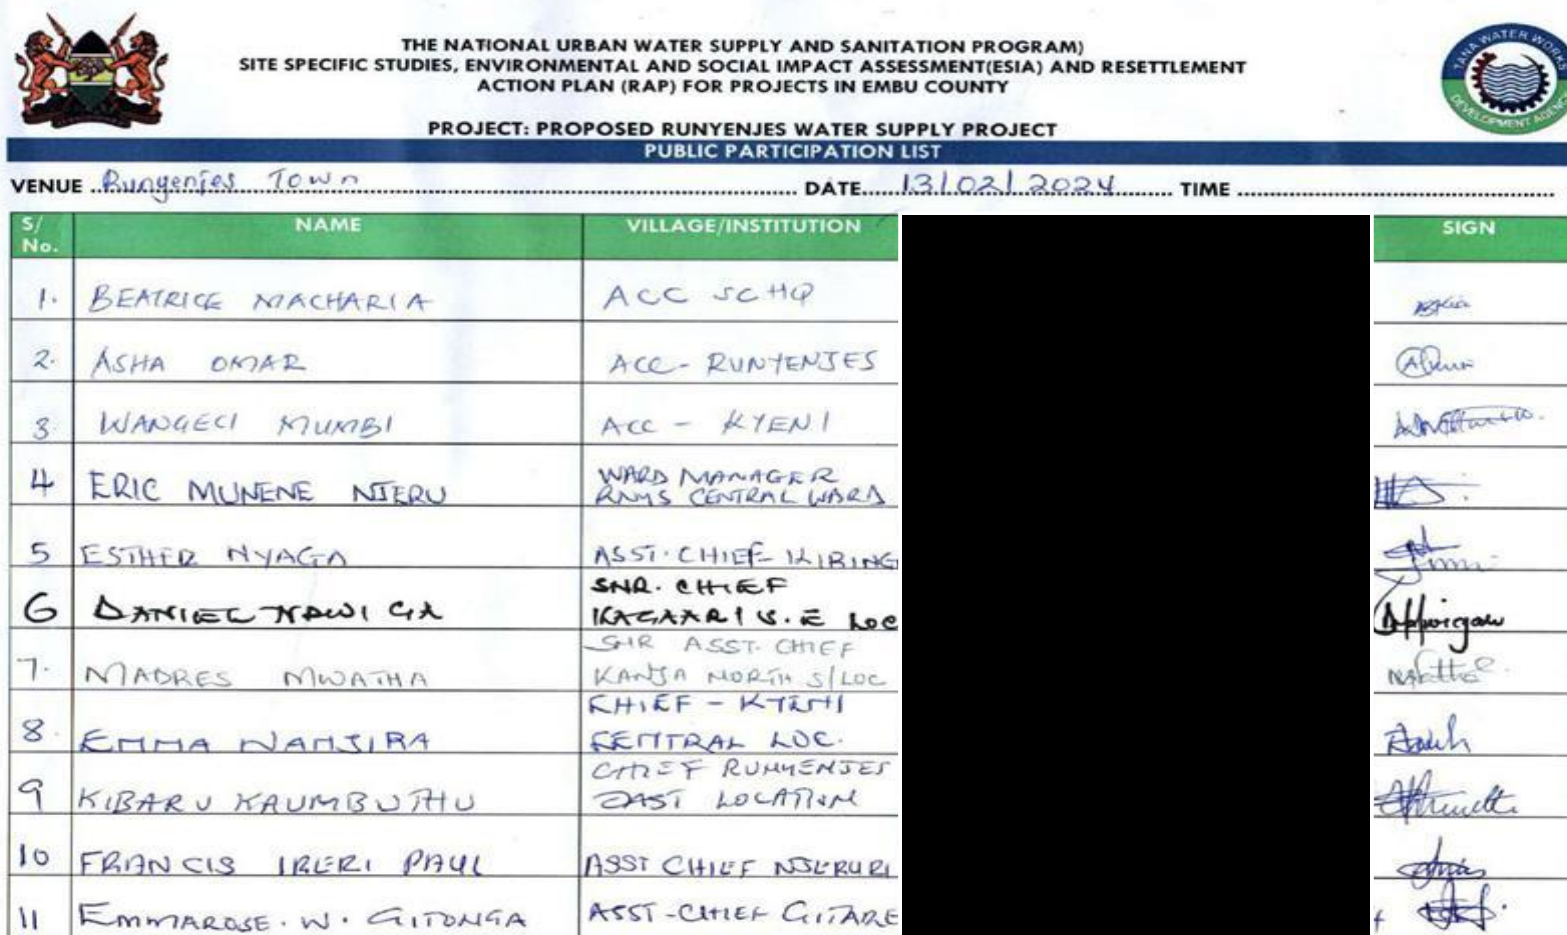 THE NATIONAL URBAN WATER SUPPLY AND SANITATION PROGRAM)
SITE SPECIFIC STUDIES, ENVIRONMENTAL AND SOCIAL IMPACT ASSESSMENT(ESIA) AND RESETTLEMENT
ACTION PLAN (RAP) FOR PROJECTS IN EMBU COUNTY
TANA WATER WORKS
DEVELOPMENT AGENCY
PROJECT: PROPOSED RUNYENJES WATER SUPPLY PROJECT
PUBLIC PARTICIPATION LIST
VENUE Runyenjes Town DATE 13/02/2024 TIME
S/ No. NAME VILLAGE/INSTITUTION SIGN
1. BEATRICE MACHARIA ACC SCHQ
2. ASHA OMAR ACC- RUNYENJES
3. WANGECI MUMBI ACC - KYENI
4 ERIC MUNENE NJERU WARD MANAGER
RNYS CENTRAL WARD
5 ESTHER NYAGA ASST. CHIEF- KIRING
6 DANIEL NDWIGA SNR. CHIEF
KAGAARI S.E LOC
7. MADRES MWATHA SNR ASST. CHIEF
KANJA NORTH S/LOC
8. EMMA WANJIRA CHIEF - KYENI
CENTRAL LOC.
9 KIBARU KAUMBUTHU CHIEF RUNYENJES
EAST LOCATION
10 FRANCIS IRERI PAUL ASST CHIEF NJERURI
11 EMMAROSE. W. GITONGA ASST-CHIEF GITARE